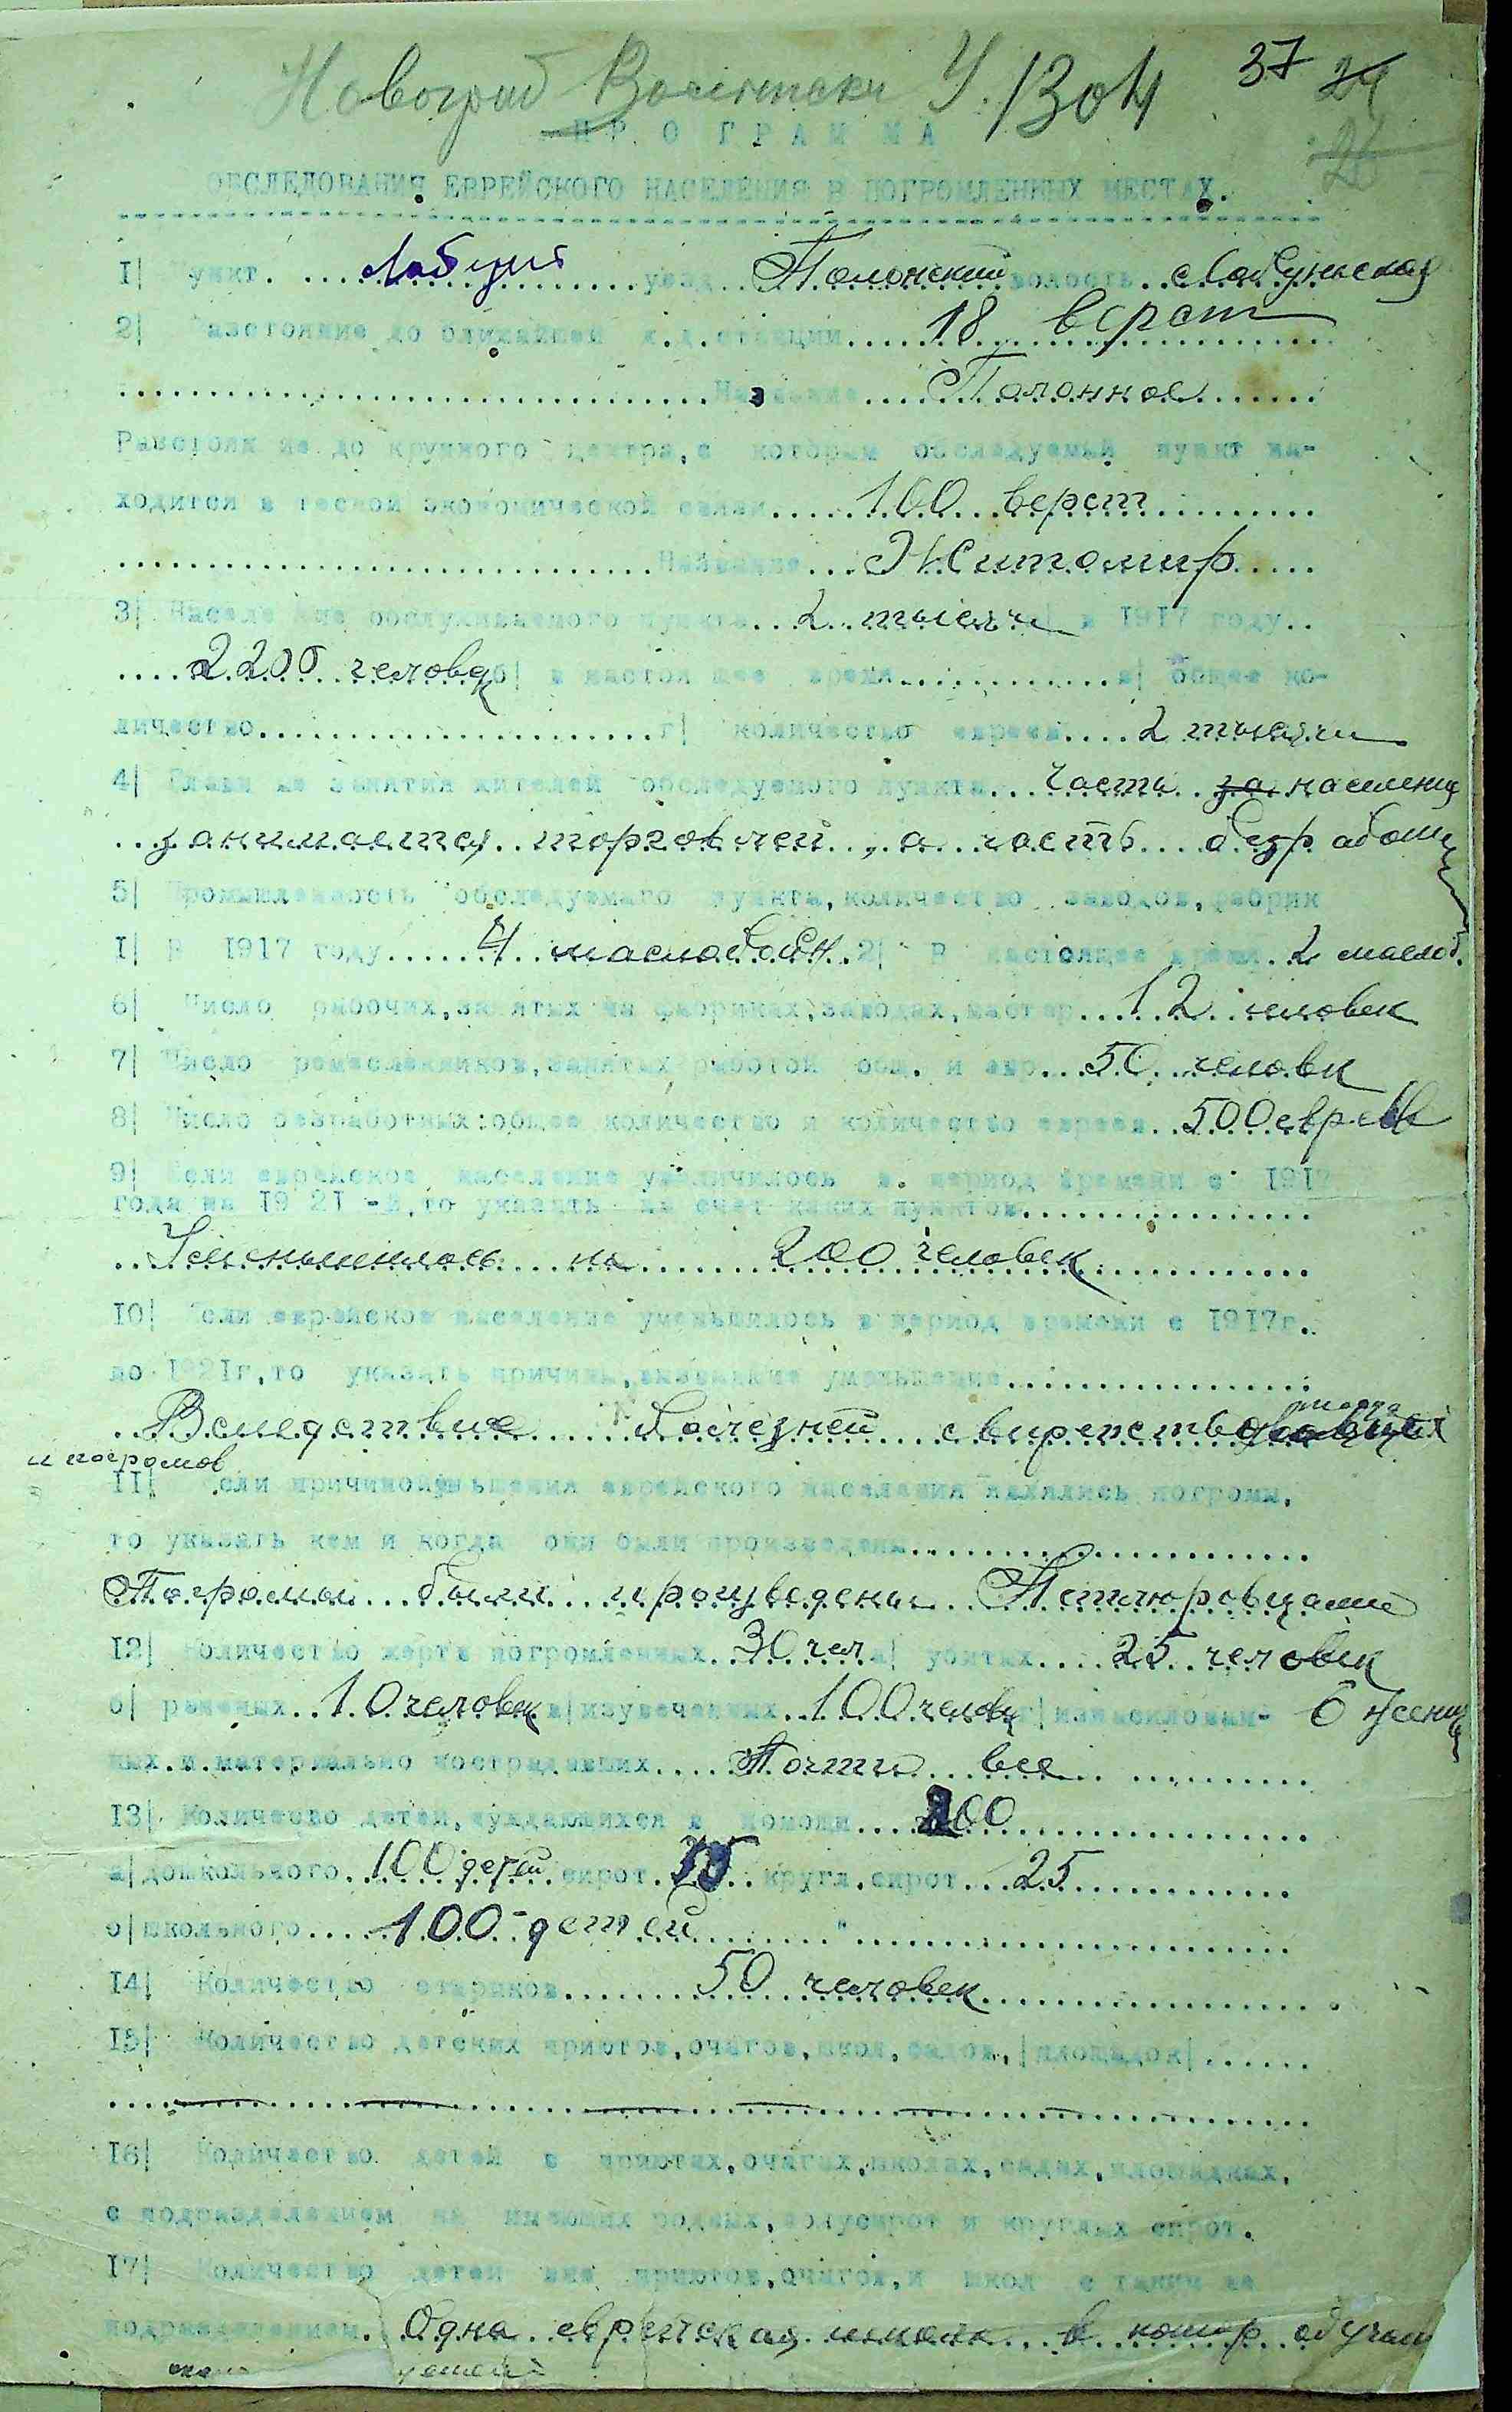 Новоград Волынски У. 1304 37 24
26
ПРОГРАММА
ОБСЛЕДОВАНИЯ ЕВРЕЙСКОГО НАСЕЛЕНИЯ В ПОГРОМЛЕННЫХ МЕСТАХ.
1| Пункт. ... Лабунь ... уезд ... Полонский волость .. Лабуньская
2| Расстояние до ближайшей ж.д. станции ... 18 верст
... Название ... Полонное ...
Расстояние до крупного центра, с которым обследуемый пункт на-
ходится в тесной экономической связи ... 100 верст ...
... Название ... Житомир ...
3| Население обслуживаемого пункта .. 2 тысячи а| в 1917 году..
.... 2200 человек б| в настоящее время ... в| общее ко-
личество ... г| количество евреев ... 2 тысячи
4| Главные занятия жителей обследуемого пункта ... часть за населения
.. занимается торговлей, а часть безработн
5| Промышленность обследуемаго пункта, количество заводов, фабрик
1| В 1917 году ... 4 маслобойн. 2| В настоящее время. 2 маслоб.
6| Число рабочих, занятых на фабриках, заводах, мастер ... 12 человек
7| Число ремесленников, занятых работой общ. и евр ... 50 человек
8| Число безработных: общее количество и количество евреев .. 500 евреев
9| Если еврейское население увеличилось в период времени с 1917
года на 1921 -й, то указать за счет каких пунктов ...
.. Уменьшилось на 200 человек ...
10| Если еврейское население уменьшилось в период времени с 1917г.
по 1921г, то указать причины, вызвавшие уменьшение ...
.. Вследствие болезней свирепствовавших тогда
и погромов
11| Если причиной уменьшения еврейского населения являлись погромы,
то указать кем и когда они были произведены ...
Погромы были произведены Петлюровцами
12| Количество жертв погромленных .. 30 чел а| убитых .... 25 человек
б| раненых .. 10 человек в| изувеченных .. 100 человек г| изнасилован- 6 женщ
ных и материально пострадавших .... Почти все ...
13| Количество детей, нуждающихся в помощи .... 200 ...
а| дошкольного .. 100 детей сирот. 75 .. кругл. сирот ... 25 ...
б| школьного .... 100 - детей ... " ...
14| Количество стариков ... 50 человек ...
15| Количество детских приютов, очагов, школ, садов, |площадок| ......
...
16| Количество детей в приютах, очагах, школах, садах, площадках,
с подразделением на имеющих родных, полусирот и круглых сирот.
17| Количество детей вне приютов, очагов, и школ с таким же
подразделением. Одна еврейская школа в котор обучают
детей